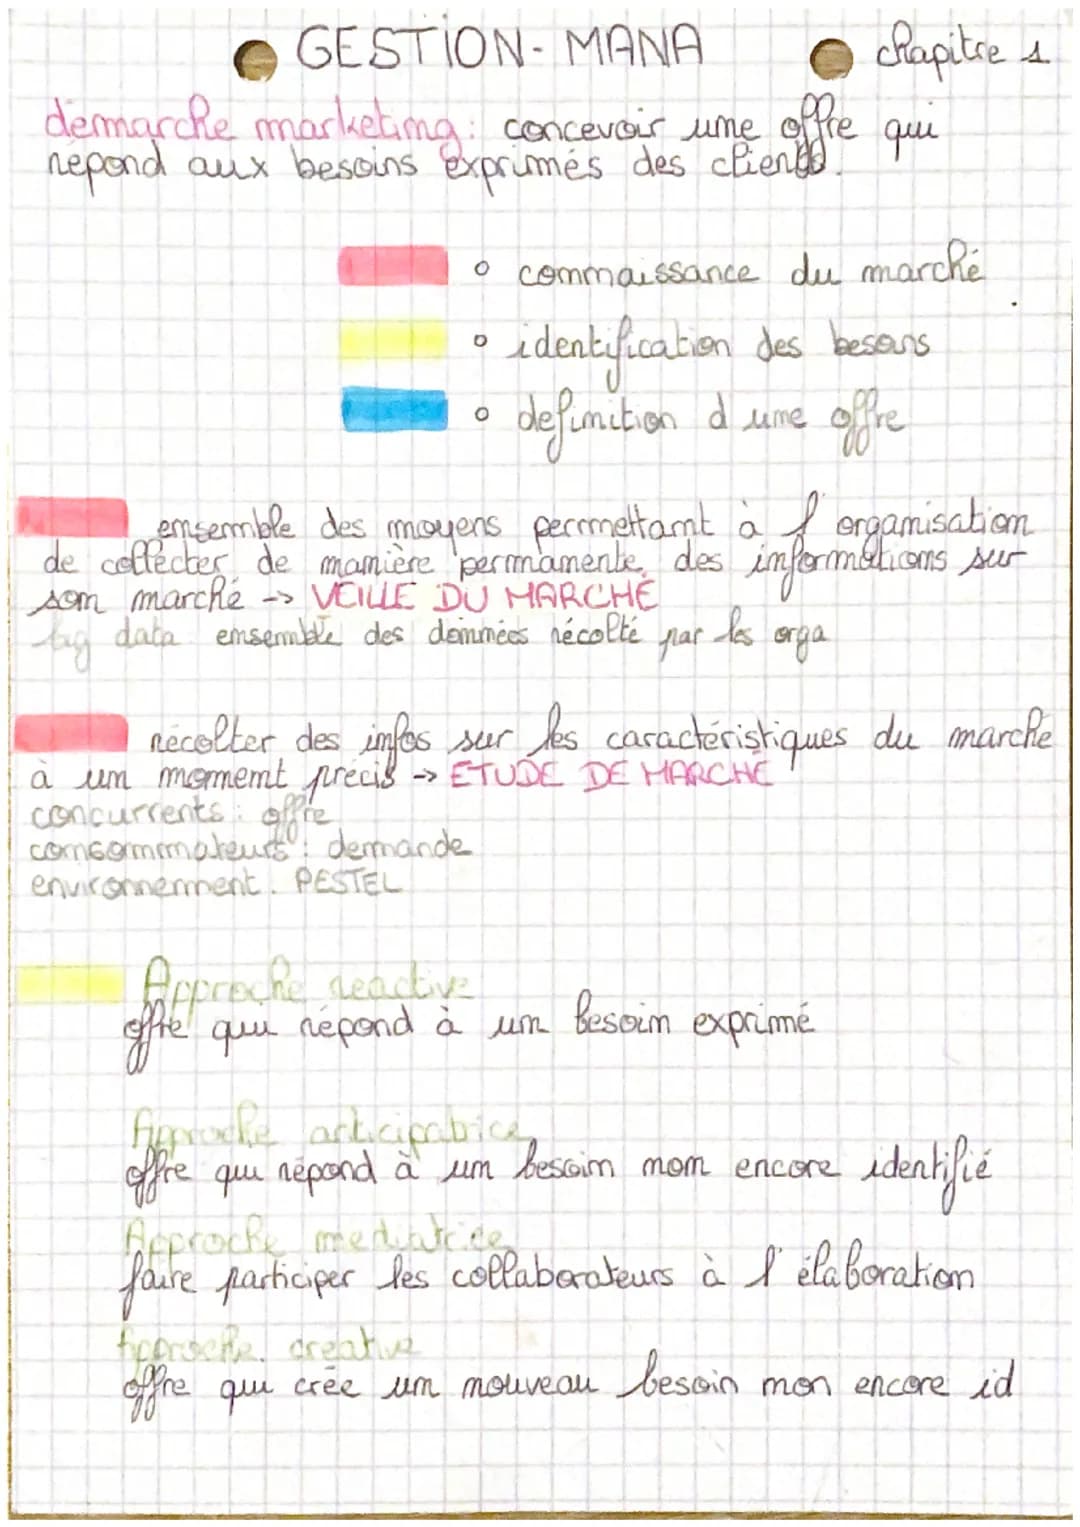 GESTION- MANA
chapitre 1
démarche marketing : concevoir une offre qui
répond aux besoins exprimés des clients.
° connaissance du marché
° identification des besoins
° definition d une offre
ensemble des moyens permettant à l'organisation
de collecter de manière permanente des informations sur
son marché -> VEILLE DU MARCHÉ
big data ensemble des données récolté par les orga
récolter des infos sur les caractéristiques du marche
à un moment précis -> ETUDE DE MARCHÉ
concurrents : offre
consommateurs : demande
environnement : PESTEL
Approche reactive
offre qui répond à un besoin exprimé
Approche anticipatrice
offre qui répond à un besoin non encore identifié
Approche mediatrice
faire participer les collaborateurs à l'élaboration
Approche creative
offre qui crée un nouveau besoin non encore id